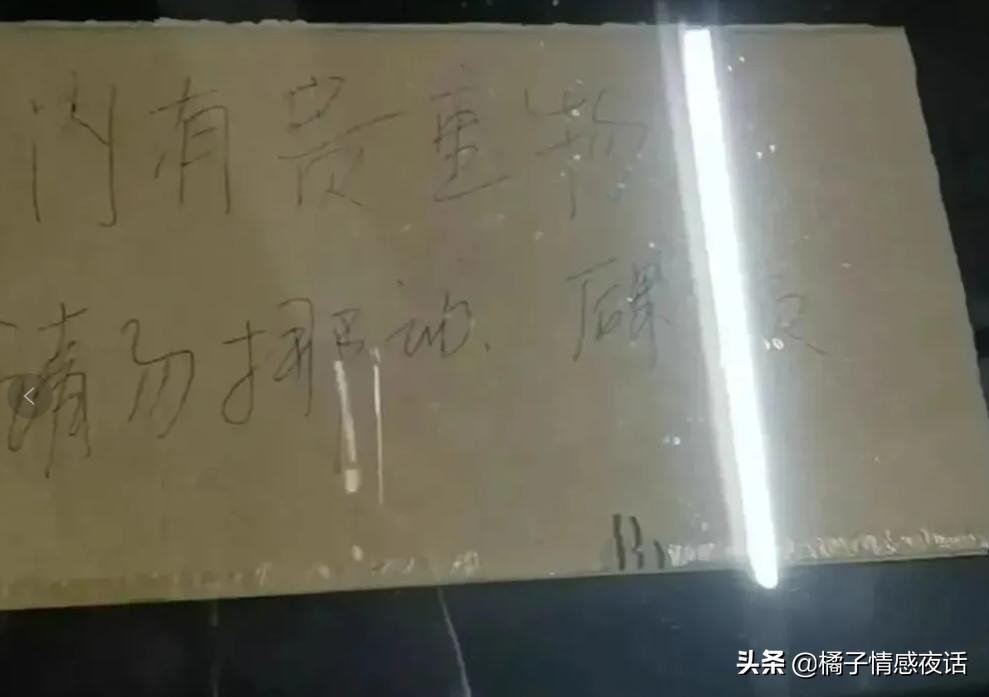 内有贵重物
请勿挪动、后果负
头条 @橘子情感夜话